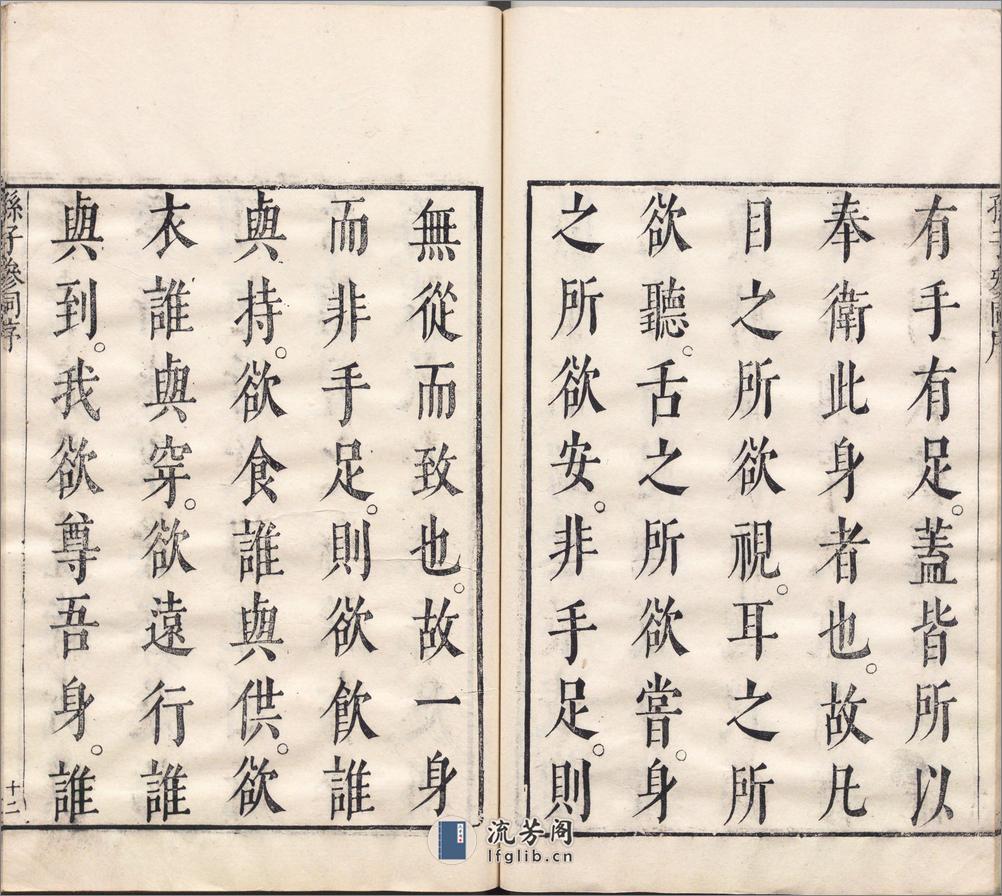 有手有足。蓋皆所以
奉衛此身者也。故凡
目之所欲視。耳之所
欲聽。舌之所欲嘗。身
之所欲安。非手足。則
無從而致也。故一身
而非手足。則欲飲誰
與持。欲食誰與供。欲
衣誰與穿。欲遠行誰
與到。我欲尊吾身。誰
孫子參同序
十二
流芳阁
lfglib.cn